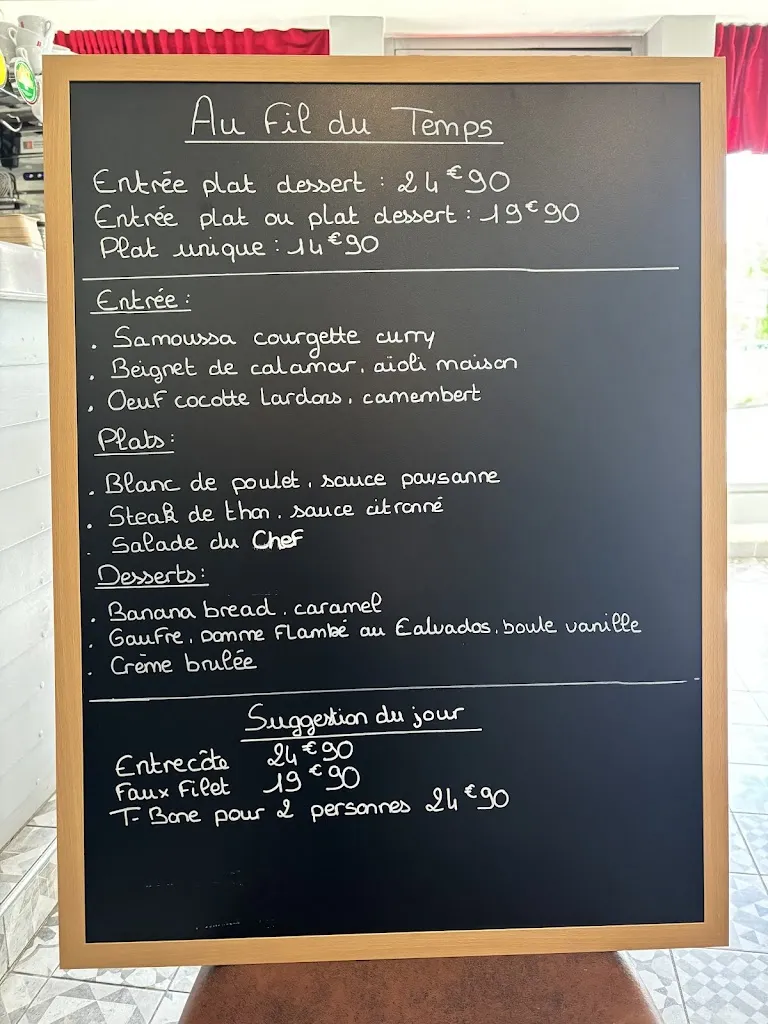 Au Fil du Temps
Entrée plat dessert : 24€90
Entrée plat ou plat dessert : 19€90
Plat unique : 14€90
Entrée :
. Samoussa courgette curry
. Beignet de calamar, aïoli maison
. Oeuf cocotte lardons, camembert
Plats :
. Blanc de poulet, sauce paysanne
. Steak de thon, sauce citronné
. Salade du Chef
Desserts :
. Banana bread, caramel
. Gaufre, pomme flambé au Calvados, boule vanille
. Crème brulée
Suggestion du jour
Entrecôte 24€90
Faux Filet 19€90
T-Bone pour 2 personnes 24€90